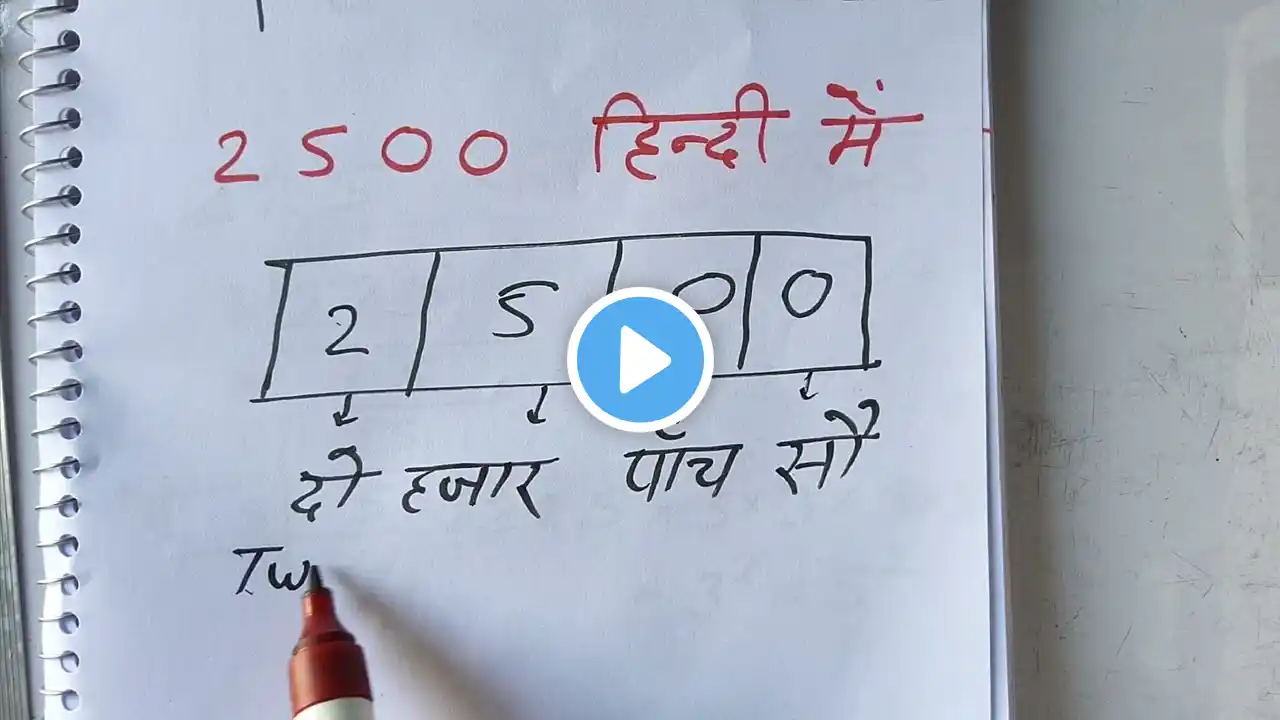 2500 हिन्दी में
2 5 0 0
दो हजार पाँच सौ
Tw